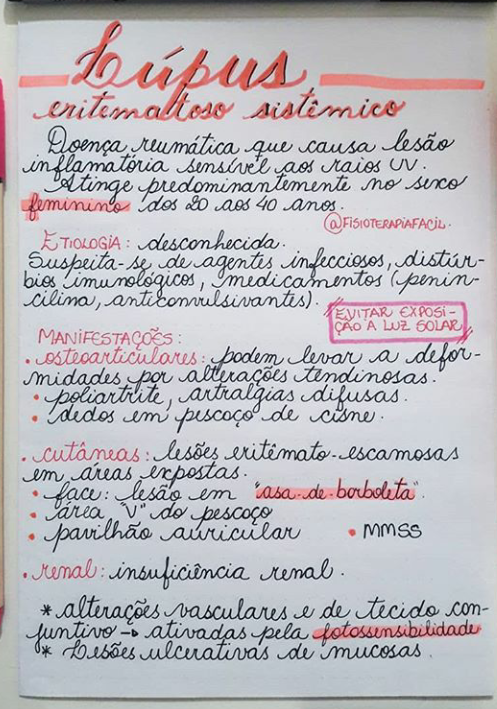 Lúpus
eritematoso sistêmico
Doença reumática que causa lesão
inflamatória sensível aos raios UV.
Atinge predominantemente no sexo
feminino dos 20 aos 40 anos.
@FISIOTERAPIAFACIL.
ETIOLOGIA: desconhecida.
Suspeita-se de agentes infecciosos, distúr-
bios imunológicos, medicamentos (penin-
cilina, anticonvulsivantes).
EVITAR EXPOSI-
ÇÃO A LUZ SOLAR
MANIFESTAÇÕES:
• osteoarticulares: podem levar a defor-
midades por alterações tendinosas.
• poliartrite, artralgias difusas.
• dedos em pescoço de cisne.
• cutâneas: lesões eritêmato-escamosas
em áreas expostas.
• face: lesão em "asa-de-borboleta".
• área "V" do pescoço
• pavilhão auricular • MMSS
• renal: insuficiência renal.
* alterações vasculares e de tecido con-
juntivo → ativadas pela fotossensibilidade
* Lesões ulcerativas de mucosas.